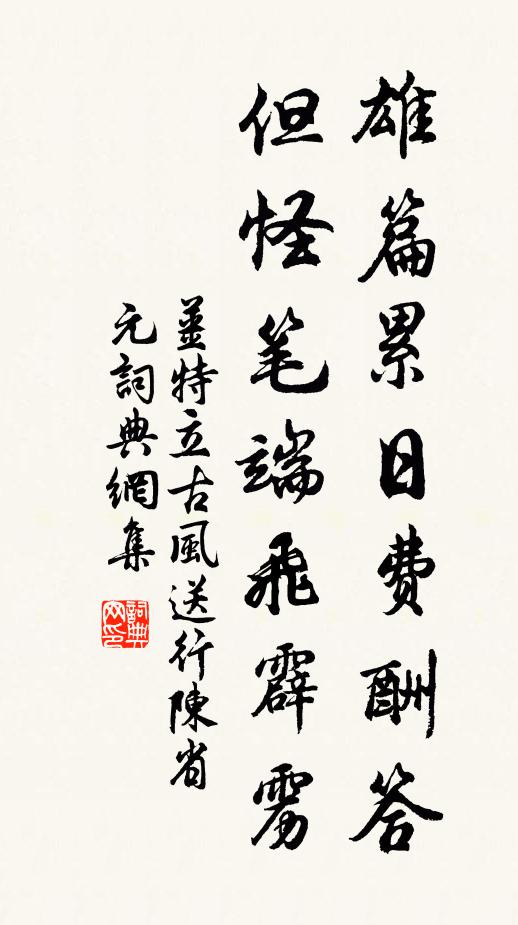 雄篇累日費酬答
但怪笔端飛霹雳
姜特立古風送行陳省
元詞典網集
詞典网印